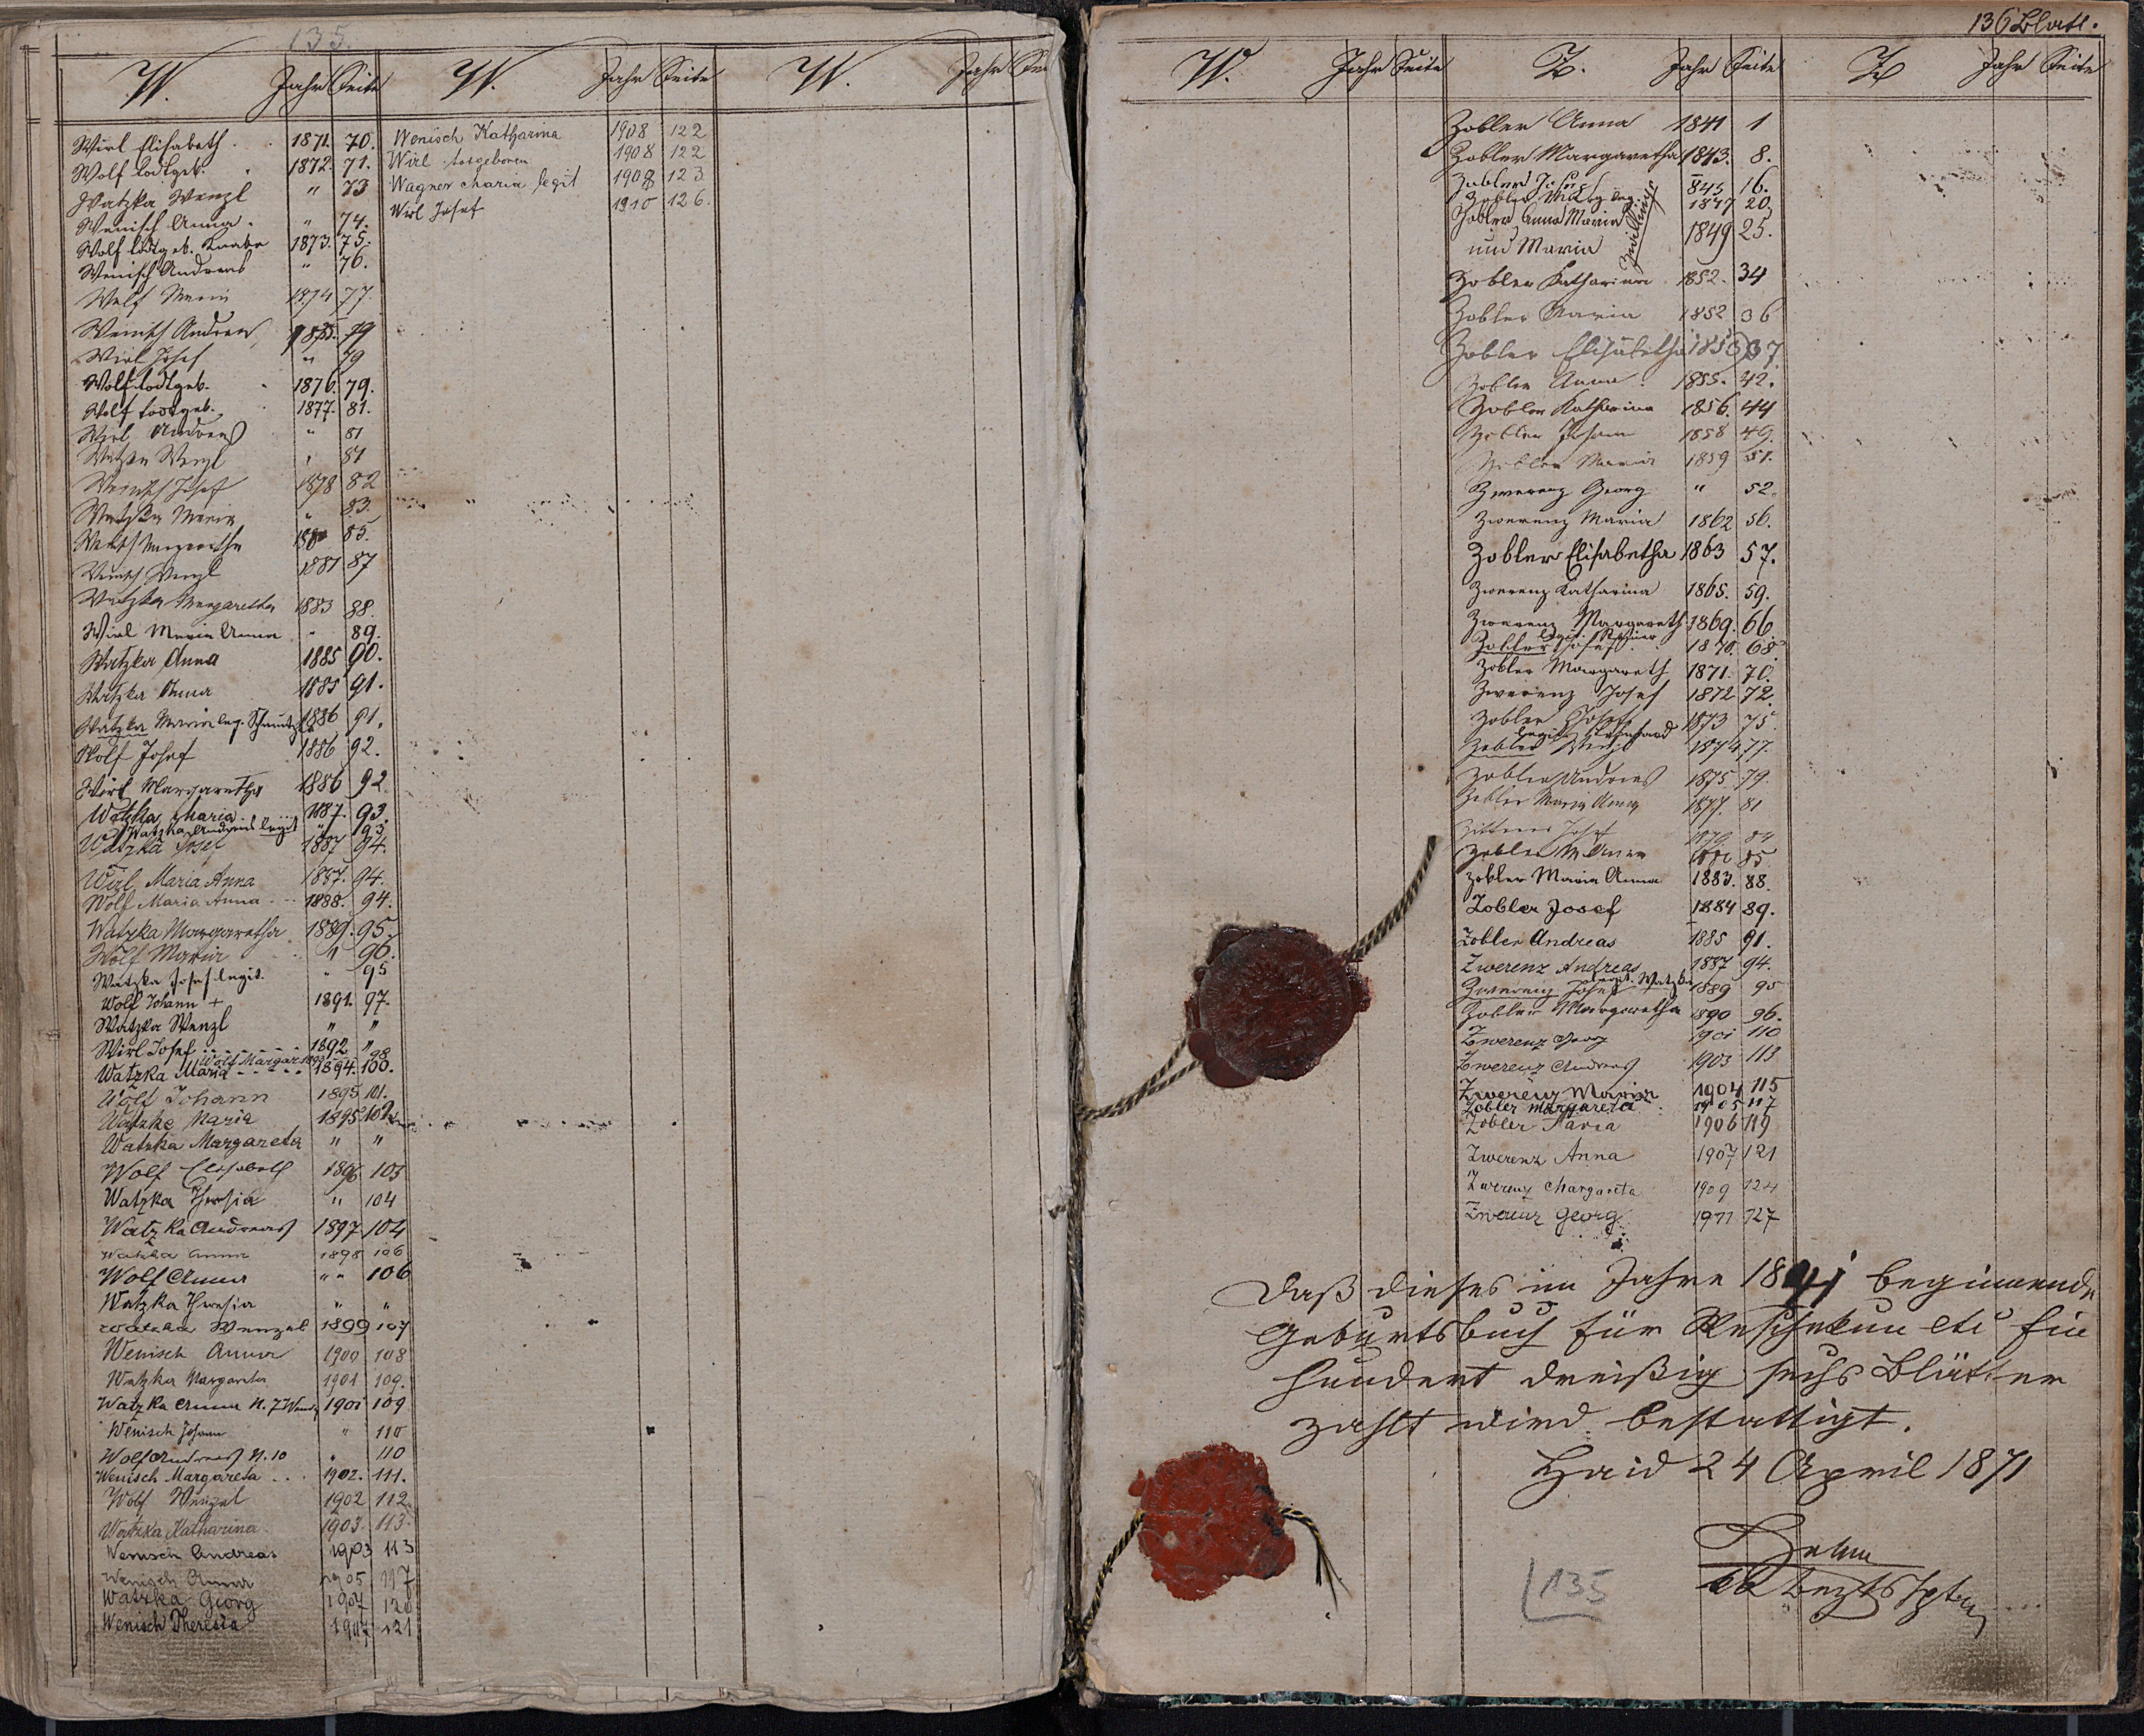 135.
W. Jahr Seite W. Jahr Seite W. Jahr
Wirl Elisabeth 1871. 70.
Wolf todtgeb. 1872. 71.
Watzka Wenzl " 73
Wenisch Anna " 74.
Wolf todtgeb. Knabe 1873. 75.
Wenisch Andreas " 76.
Wolf Maria 1874 77.
Wenisch Andreas 1875. 79
Wirl Josef " 79
Wolf todtgeb. 1876. 79.
Wolf todtgeb. 1877. 81.
Wirl Andreas " 81
Watzka Wenzl " 81
Wenisch Josef 1878 82
Watzka Maria " 83.
Wenisch Margaretha 1880 85.
Wenisch Wenzl 1881 87
Watzka Margaretha 1883 88.
Wirl Maria Anna " 89.
Watzka Anna 1885 90.
Watzka Anna 1885 91.
Watzka Maria leg. 1886 91.
Wolf Josef 1886 92.
Wirl Margaretha 1886 92.
Watzka Maria 1887. 93.
Watzka Andreas legit " 93
Watzka Josef 1887 94.
Wirl Maria Anna 1887. 94.
Wolf Maria Anna 1888. 94.
Watzka Margaretha 1889. 95.
Wolf Maria " 96.
Watzka Josef legit. " 95
Wolf Johann + 1891. 97.
Watzka Wenzl " "
Wirl Josef 1892 "
Wolf Margar. 1893 98
Watzka Maria 1894. 100.
Wolf Johann 1895 101.
Watzke Maria 1895 102
Watzka Margareta " "
Wolf Elisabeth 1896 103
Watzka Theresia " 104
Watzka Andreas 1897 104
Watzka Anna 1898 106
Wolf Anna " " 106
Watzka Theresia " "
Watzka Wenzel 1899 107
Wenisch Anna 1900 108
Watzka Margareta 1901 109.
Watzka Anna N. 7 1901 109
Wenisch Johann " 110
Wolf Andreas N. 10 " 110
Wenisch Margareta 1902. 111.
Wolf Wenzel 1902 112
Watzka Katharina 1903. 113.
Wenisch Andreas 1903 113
Wenisch Anna 1905 117
Watzka Georg 1907 120
Wenisch Theresia 1907 121
Wenisch Katharina 1908 122
Wirl totgeboren 1908 122
Wagner Maria legit 1908 123
Wirl Josef 1910 126.
136 Blatt.
W. Jahr Seite Z. Jahr Seite Z Jahr Seite
Zobler Anna 1841 1
Zobler Margaretha 1843. 8.
Zobler Josef 845 16.
Zobler 1847 20.
Zobler Anna Maria
und Maria Zwillinge 1849 25.
Zobler Katharina 1852. 34
Zobler Maria 1852 36
Zobler Elisabetha 1853 37
Zobler Anna 1855. 42.
Zobler Katharina 1856. 44
Zobler Johann 1858 49.
Zobler Maria 1859 51.
Zwerenz Georg " 52.
Zwerenz Maria 1862 56.
Zobler Elisabetha 1863 57.
Zwerenz Katharina 1865. 59.
Zwerenz Margareth 1869. 66
Zobler Josef legit. 1870. 68
Zobler Margareth 1871. 70.
Zwerenz Josef 1872 72.
Zobler Josef 1873 75
Zobler Wenzl legit 1874 77.
Zobler Andreas 1875 79.
Zobler Maria Anna 1877. 81
Josef 1879 84
Zobler M Anna 1880 85
Zobler Maria Anna 1883. 88.
Zobler Josef 1884 89.
Zobler Andreas 1885 91.
Zwerenz Andreas 1887 94.
Zwerenz Josef legit. Watzka 1889 95
Zobler Margaretha 1890 96.
Zwerenz Georg 1901 110
Zwerenz Andreas 1903 113
Zwerenz Maria 1904 115
Zobler Margareta 1905 117
Zobler Maria 1906 119
Zwerenz Anna 1907 121
Zwerenz Margareta 1909 124
Zwerenz Georg 1911 127
Daß dieses im Jahre 1841 beginnende
Geburtsbuch für Ein
hundert dreißig sechs Blätter
zahlt wird bestattigt.
Haid 24 April 1871
135